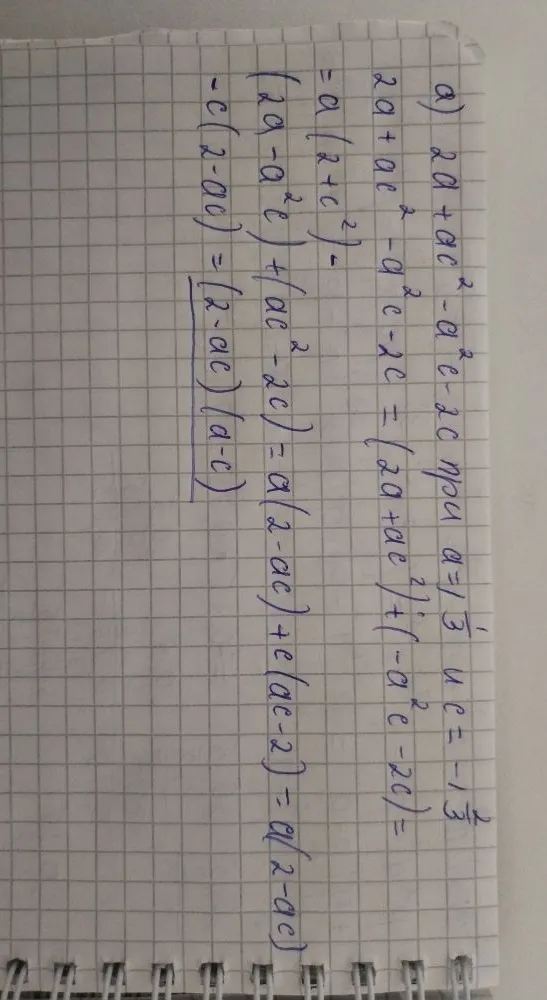 а) 2a + ac² - a²c - 2c при a = 1 1/3 и c = -1 2/3
2a + ac² - a²c - 2c = (2a + ac²) + (-a²c - 2c) =
= a(2 + c²) -
(2a - a²c) + (ac² - 2c) = a(2 - ac) + c(ac - 2) = a(2 - ac)
- c(2 - ac) = (2 - ac)(a - c)